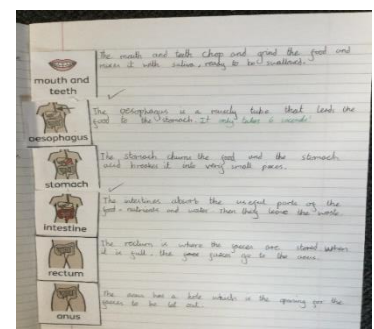 The mouth and teeth chop and grind the food and
mixes it with saliva, ready to be swallowed.
mouth and
teeth
The oesophagus is a muscly tube that leads the
food to the stomach. It only takes 6 seconds!
oesophagus
The stomach churns the food and the stomach
acid breaks it into very small pieces.
stomach
The intestines absorb the useful parts of the
food - nutrients and water. Then they leave the waste.
intestine
The rectum is where the faeces are stored. When
it is full, the faeces go to the anus.
rectum
The anus has a hole which is the opening for the
faeces to be let out.
anus